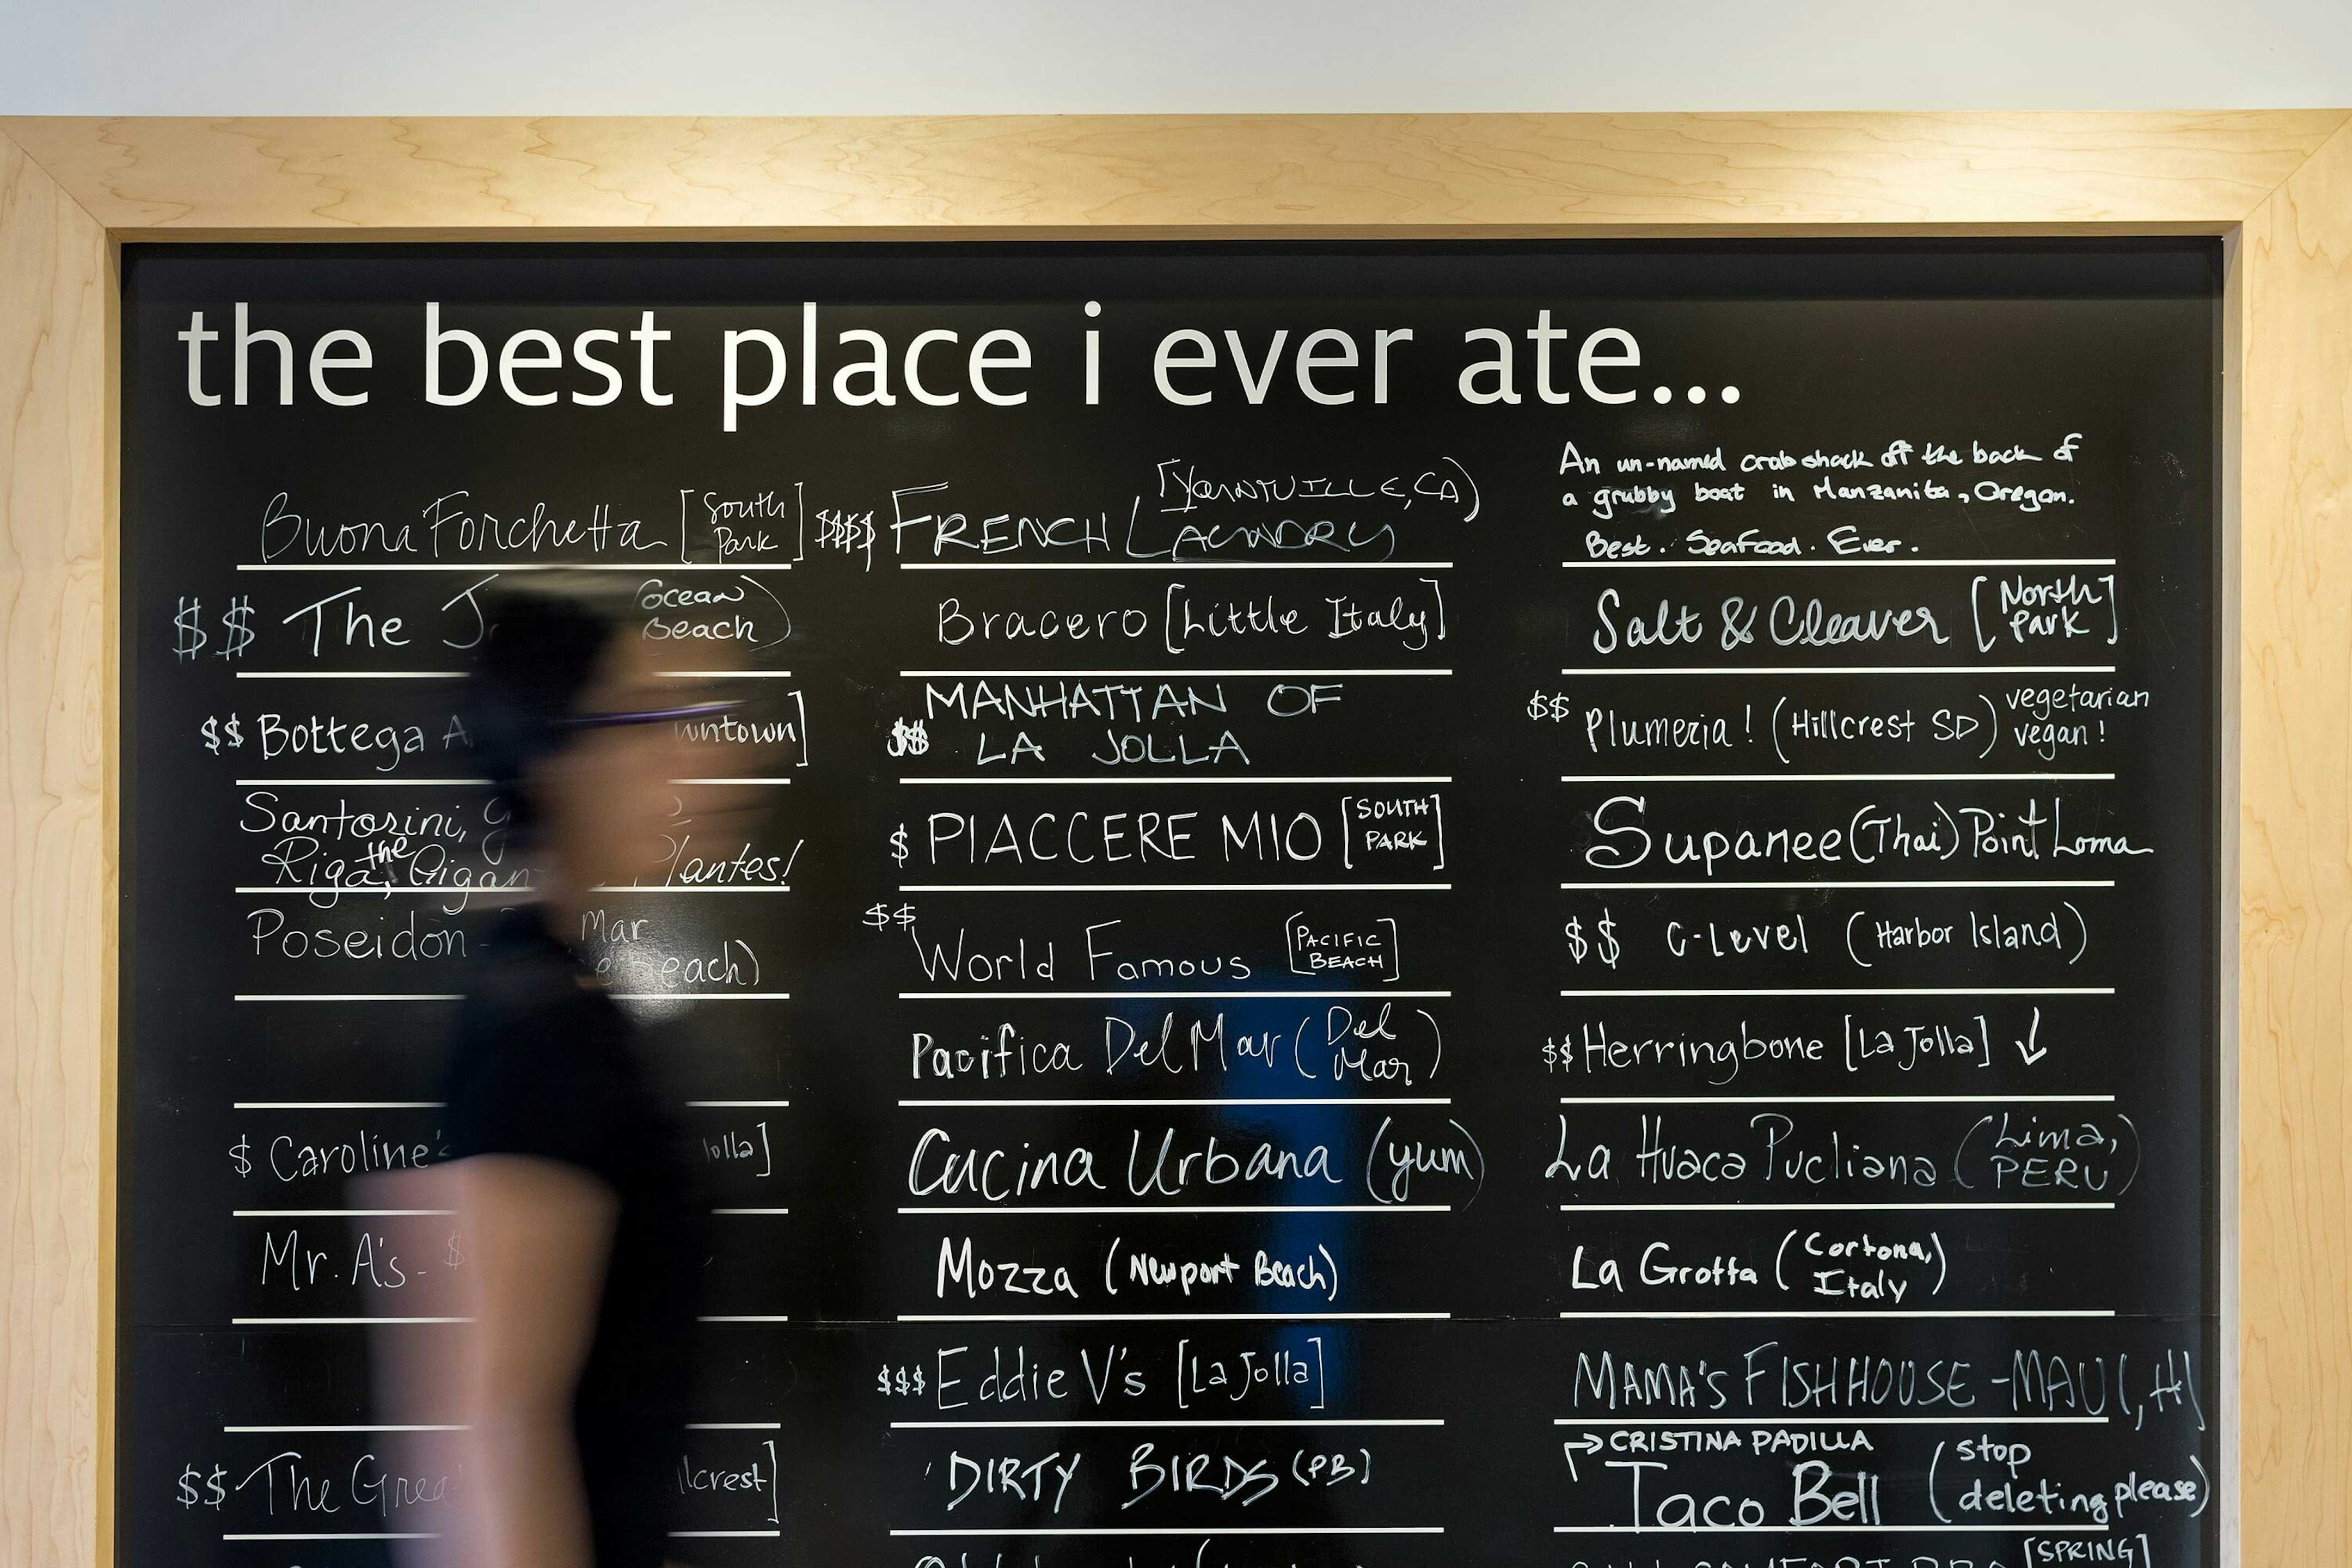 the best place i ever ate...
Buona Forchetta [South Park]
$$ The (Ocean Beach)
$$ Bottega
Santorini,
Riga, the
Poseidon - Mar
$ Caroline's
Mr. A's - $
$$ The
$$$$ FRENCH LAUNDRY [YOUNTVILLE, CA)
Bracero [Little Italy]
$$ MANHATTAN OF
LA JOLLA
$ PIACCERE MIO [SOUTH PARK]
$$ World Famous [PACIFIC BEACH]
Pacifica Del Mar (Del Mar)
Cucina Urbana (yum)
Mozza (Newport Beach)
$$$ Eddie V's [La Jolla]
DIRTY BIRDS (PB)
An un-named crab shack off the back of
a grubby boat in Manzanita, Oregon.
Best. Seafood. Ever.
Salt & Cleaver [North Park]
$$ Plumeria! (Hillcrest SD) vegetarian vegan!
Supanee (Thai) Point Loma
$$ C-Level (Harbor Island)
$$ Herringbone [La Jolla] ↓
La Huaca Pucllana (Lima, PERU)
La Grotta (Cortona, Italy)
MAMA'S FISHHOUSE - MAUI, HI
CRISTINA PADILLA
Taco Bell (stop deleting please)
[SPRING]